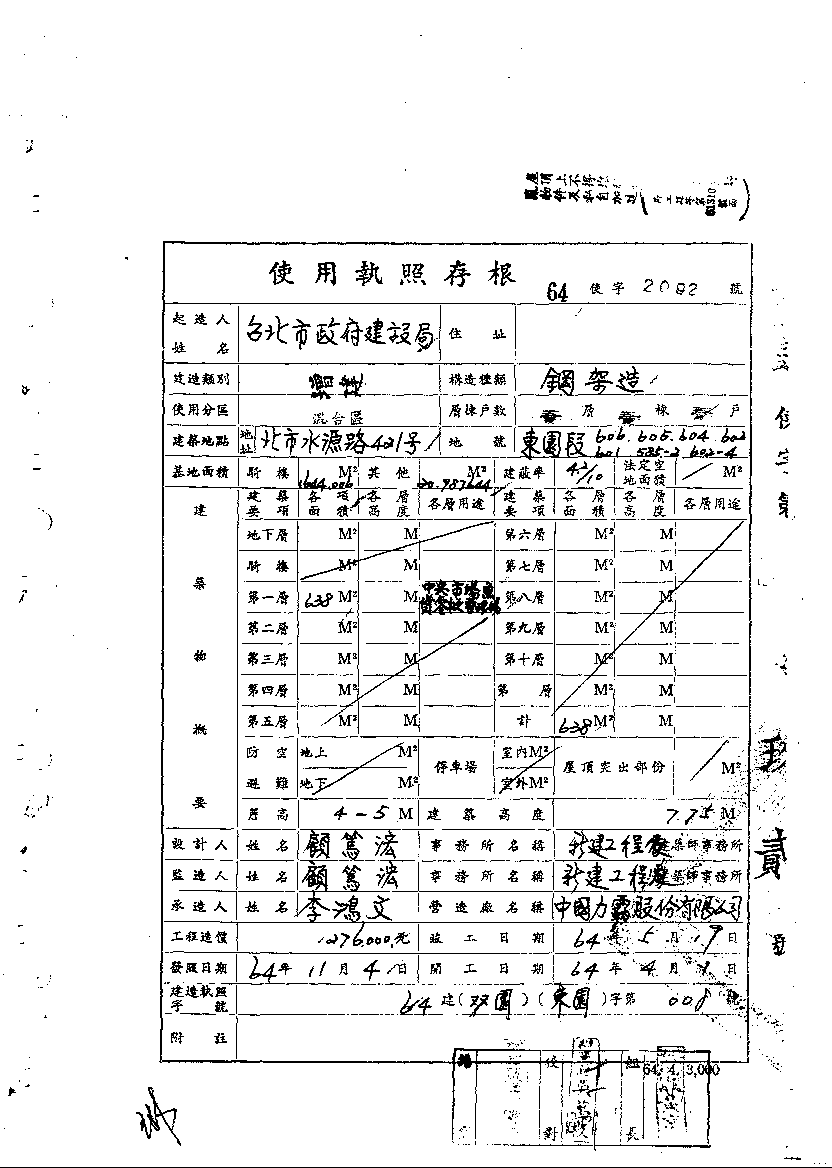 屋頂上不得
物件及私自加
使用執照存根
64 使字 2082 號
起造人姓名 台北市政府建設局 住址
建造類別 構造種類 鋼架造
使用分區 混合區 層棟戶數 層 棟 戶
建築地點 地址 北市水源路421號 地號 東園段 606.605.604.602
601 535-2 602-4
基地面積 騎樓 M² 其他 M² 建蔽率 法定空地面積 M²
建築物概要
建築要項 各項面積 各層高度 各層用途 建築要項 各層面積 各層高度 各層用途
地下層 M² M 第六層 M² M
騎樓 M² M 第七層 M² M
第一層 638 M² M 中央市場 第八層 M² M
第二層 M² M 第九層 M² M
第三層 M² M 第十層 M² M
第四層 M² M 第 層 M² M
第五層 M² M 計 638 M² M
防空避難 地上 M² 停車場 室內M² 屋頂突出部份 M²
地下 M² 室外M²
層高 4-5 M 建築高度 7.75 M
設計人 姓名 顧篤浤 事務所名稱 新建工程處 築師事務所
監造人 姓名 顧篤浤 事務所名稱 新建工程處 築師事務所
承造人 姓名 李鴻文 營造廠名稱 中國力霸股份有限公司
工程造價 1,276,000元 竣工日期 64年5月19日
發照日期 64年11月4日 開工日期 64年4月1日
建造執照字號 64 建(双園)(東園)字第 008 號
附註
64. 4. 3,000
校對 組長
使字第
貳